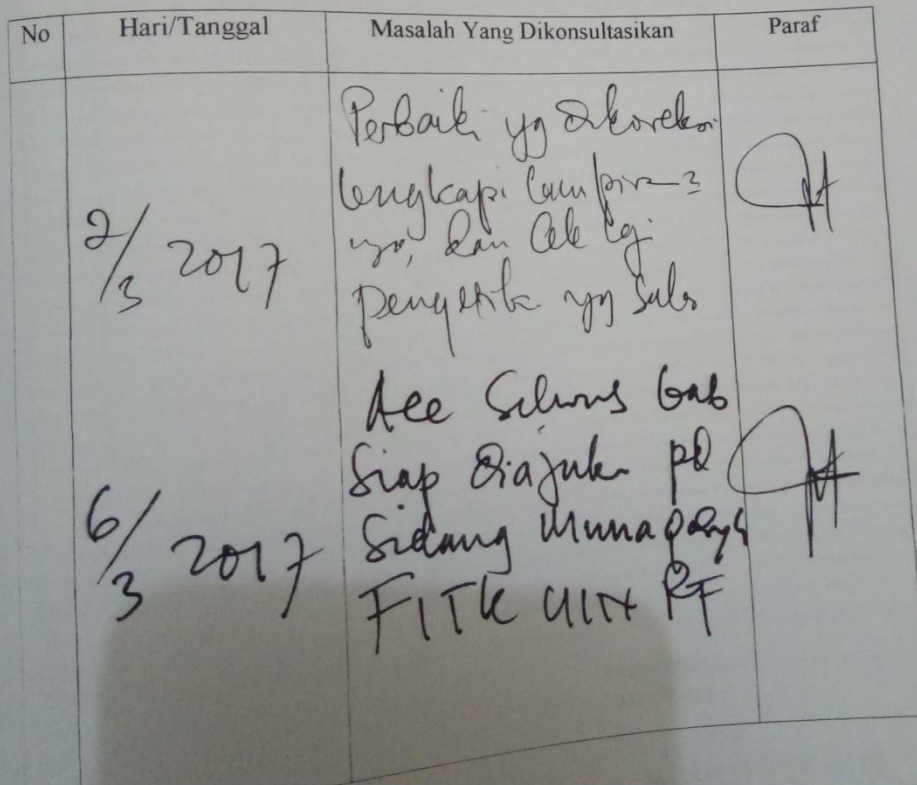 No Hari/Tanggal Masalah Yang Dikonsultasikan Paraf
2/3 2017
Perbaiki yg dikoreksi
lengkapi lampiran2
nya, dan Cek lg.
pengetik yg
6/3 2017
Acc Bab
Siap Diajuk pd
Sidang Munaqasyah
FITK UIN RF